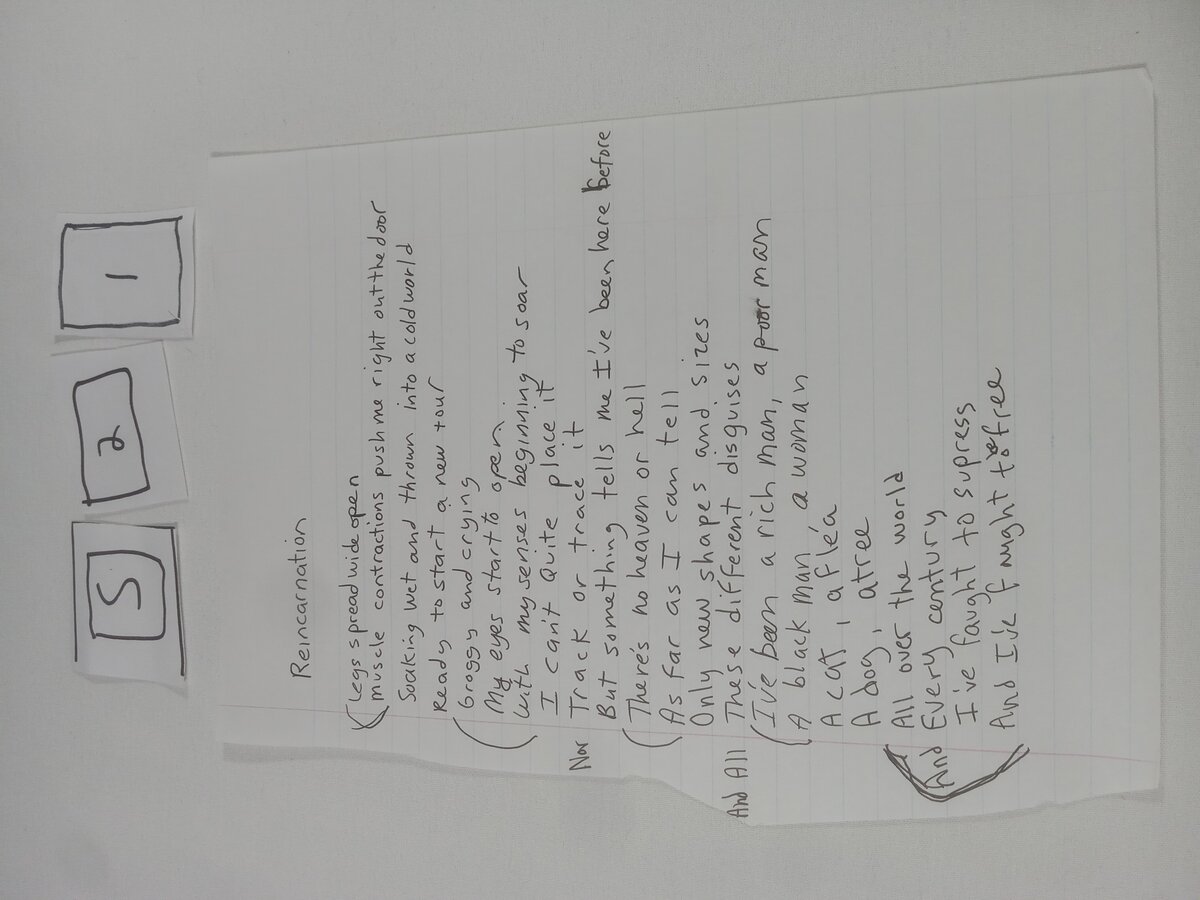 S 2 1
Reincarnation
Legs spread wide open
muscle contractions push me right out the door
Soaking wet and thrown into a cold world
Ready to start a new tour
Groggy and crying
My eyes start to open
with my senses beginning to soar
I can't quite place it
Nor Track or trace it
But something tells me I've been here before
There's no heaven or hell
As far as I can tell
Only new shapes and sizes
And All These different disguises
I've been a rich man, a poor man
A black man, a woman
A cat, a flea
A dog, a tree
All over the world
And Every century
I've faught to supress
And I've faught to be free